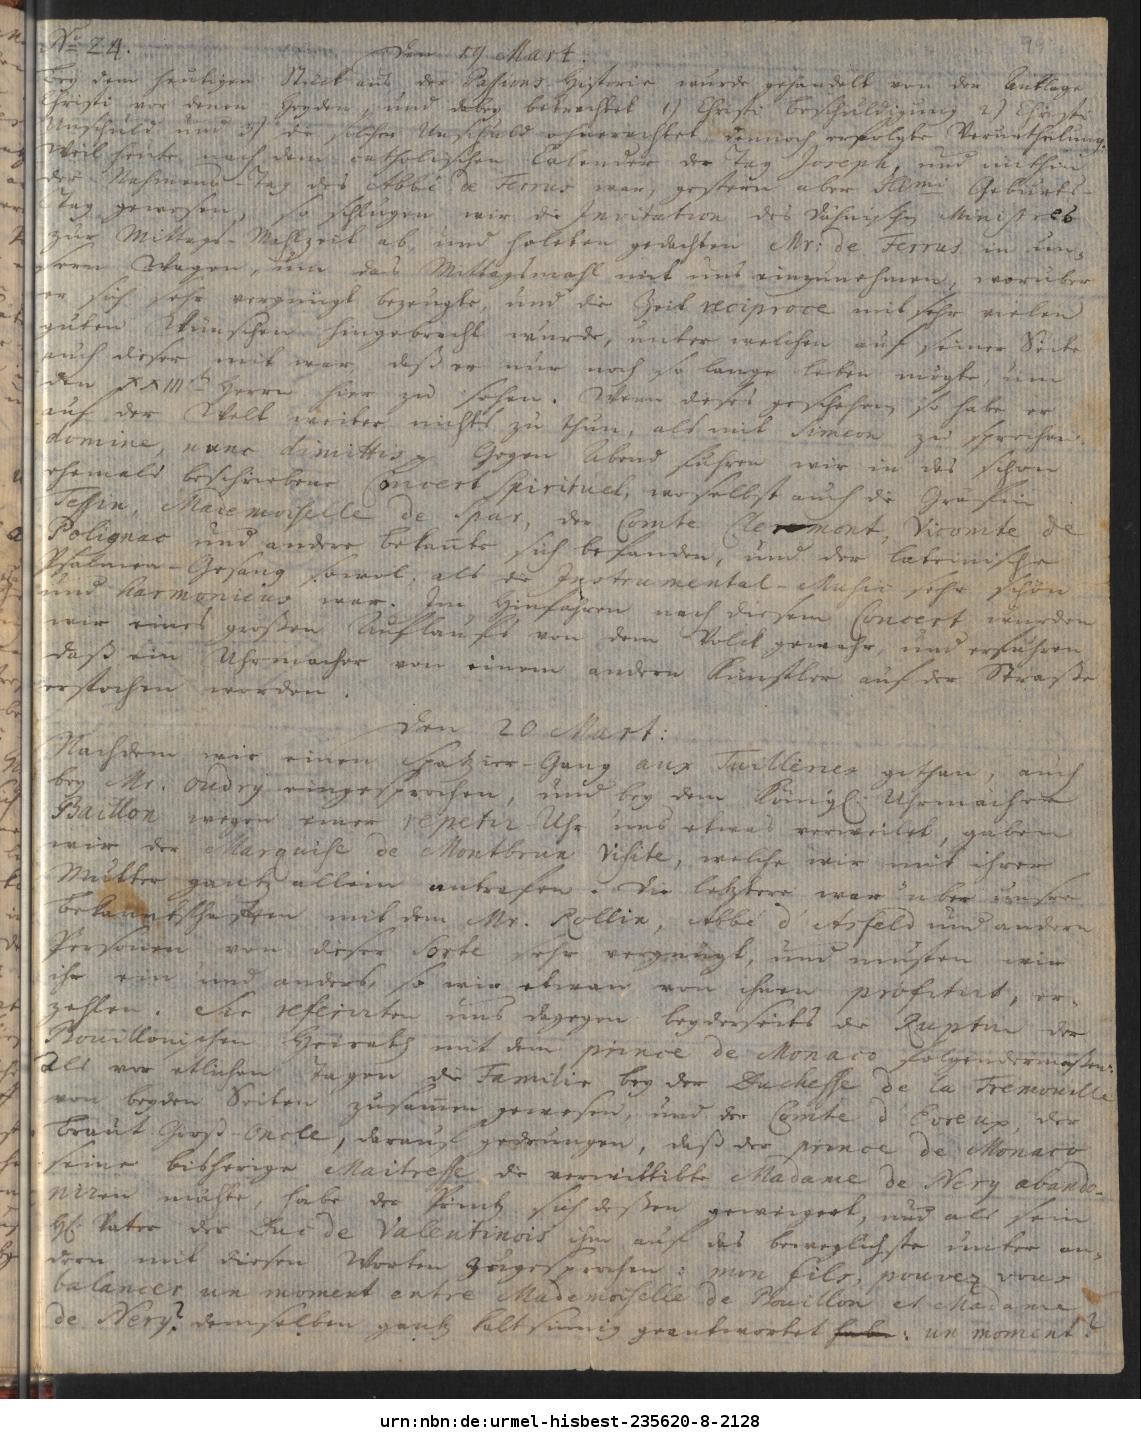 No 24.
99
Den 19 Mart:
Bey dem heutigen Stück aus der Passions Historie wurde gehandelt von der Anklage
Christi vor denen Heyden, und dabey betrachtet 1) Christi Beschuldigung 2) Christi
Unschuld und 3) die solcher Unschuld ohnerachtet dennoch erfolgte Verurtheilung.
Weil heute nach dem catholischen Calender der Tag Joseph, und mithin
der Nahmens-Tag des Abbé de Ferrus war, gestern aber Geburts-
Tag gewesen, so schlugen wir die Invitation des Dähnischen Ministres
zur Mittags-Mahlzeit ab, und holeten gedachten Mr: de Ferrus in un-
serm Wagen, um das Mittagsmahl mit uns einzunehmen, worüber
er sich sehr vergnügt bezeugte, und die Zeit reciproce mit sehr vielen
guten Wünschen hingebracht wurde, unter welchen auf seiner Seite
auch dieser mit war, daß er nur noch so lange leben mögte, um
den XXIII Herrn hier zu sehen. Wenn dieses geschehen, so habe er
auf der Welt weiter nichts zu thun, als mit Simeon zu sprechen:
domine, nunc dimittis Gegen Abend fuhren wir in das schon
ehemals beschriebene Concert spirituel, woselbst auch die Gräfin
Tessin, Mademoiselle de Spar, der Comte Cleremont, Vicomte de
Polignac und andere bekannte sich befanden, und der lateinische
Psalmen-Gesang sowol, als die Instrumental-Music sehr schön
und harmonieus war. Im Hinfahren nach diesem Concert wurden
wir eines großen Auflaufs von dem Volck gewahr, und erfuhren
daß ein Uhrmacher von einem andern Künstler auf der Straße
erstochen worden.
Den 20 Mart:
Nachdem wir einen Spatzier-Gang aux Tuilleries gethan, auch
bey Mr. Oudry eingesprochen, und bey dem Königl: Uhrmacher
Baillon wegen einer repetir Uhr uns etwas verweilet, gaben
wir der Marquise de Montbrun Visite, welche wir mit ihrer
Mutter gantz allein antrafen. Die letztere war über unsre
Bekanntschaften mit dem Mr. Rollin, Abbé d'Asfeld und andern
Personen von dieser Sorte sehr vergnügt, und musten wir
ihr ein und anders, so wir etwan von ihnen profitirt, er-
zehlen. Sie referirten uns dagegen beyderseits die Ruptur der
Bouillonischen Heirath mit dem prince de Monaco folgendermaßen:
Als vor etlichen Tagen die Familie bey der Duchesse de la Tremouille
von beyden Seiten zusammen gewesen, und der Comte d'Evreux, der
Braut Groß-Oncle, darauf gedrungen, daß der prince de Monaco
seine bisherige Maitresse die verwittibte Madame de Nery abando-
niren mächte, habe der Printz sich deßen geweigert, und als sein
H: Vater der Duc de Valentinois ihm auf das beweglichste unter an-
dern mit diesen Worten zugesprochen: mon fils, pouvez vous
balancer un moment entre Mademoiselle de Bouillon et Madame
de Nery? demselben gantz kaltsinnig geantwortet habe: un moment?
urn:nbn:de:urmel-hisbest-235620-8-2128